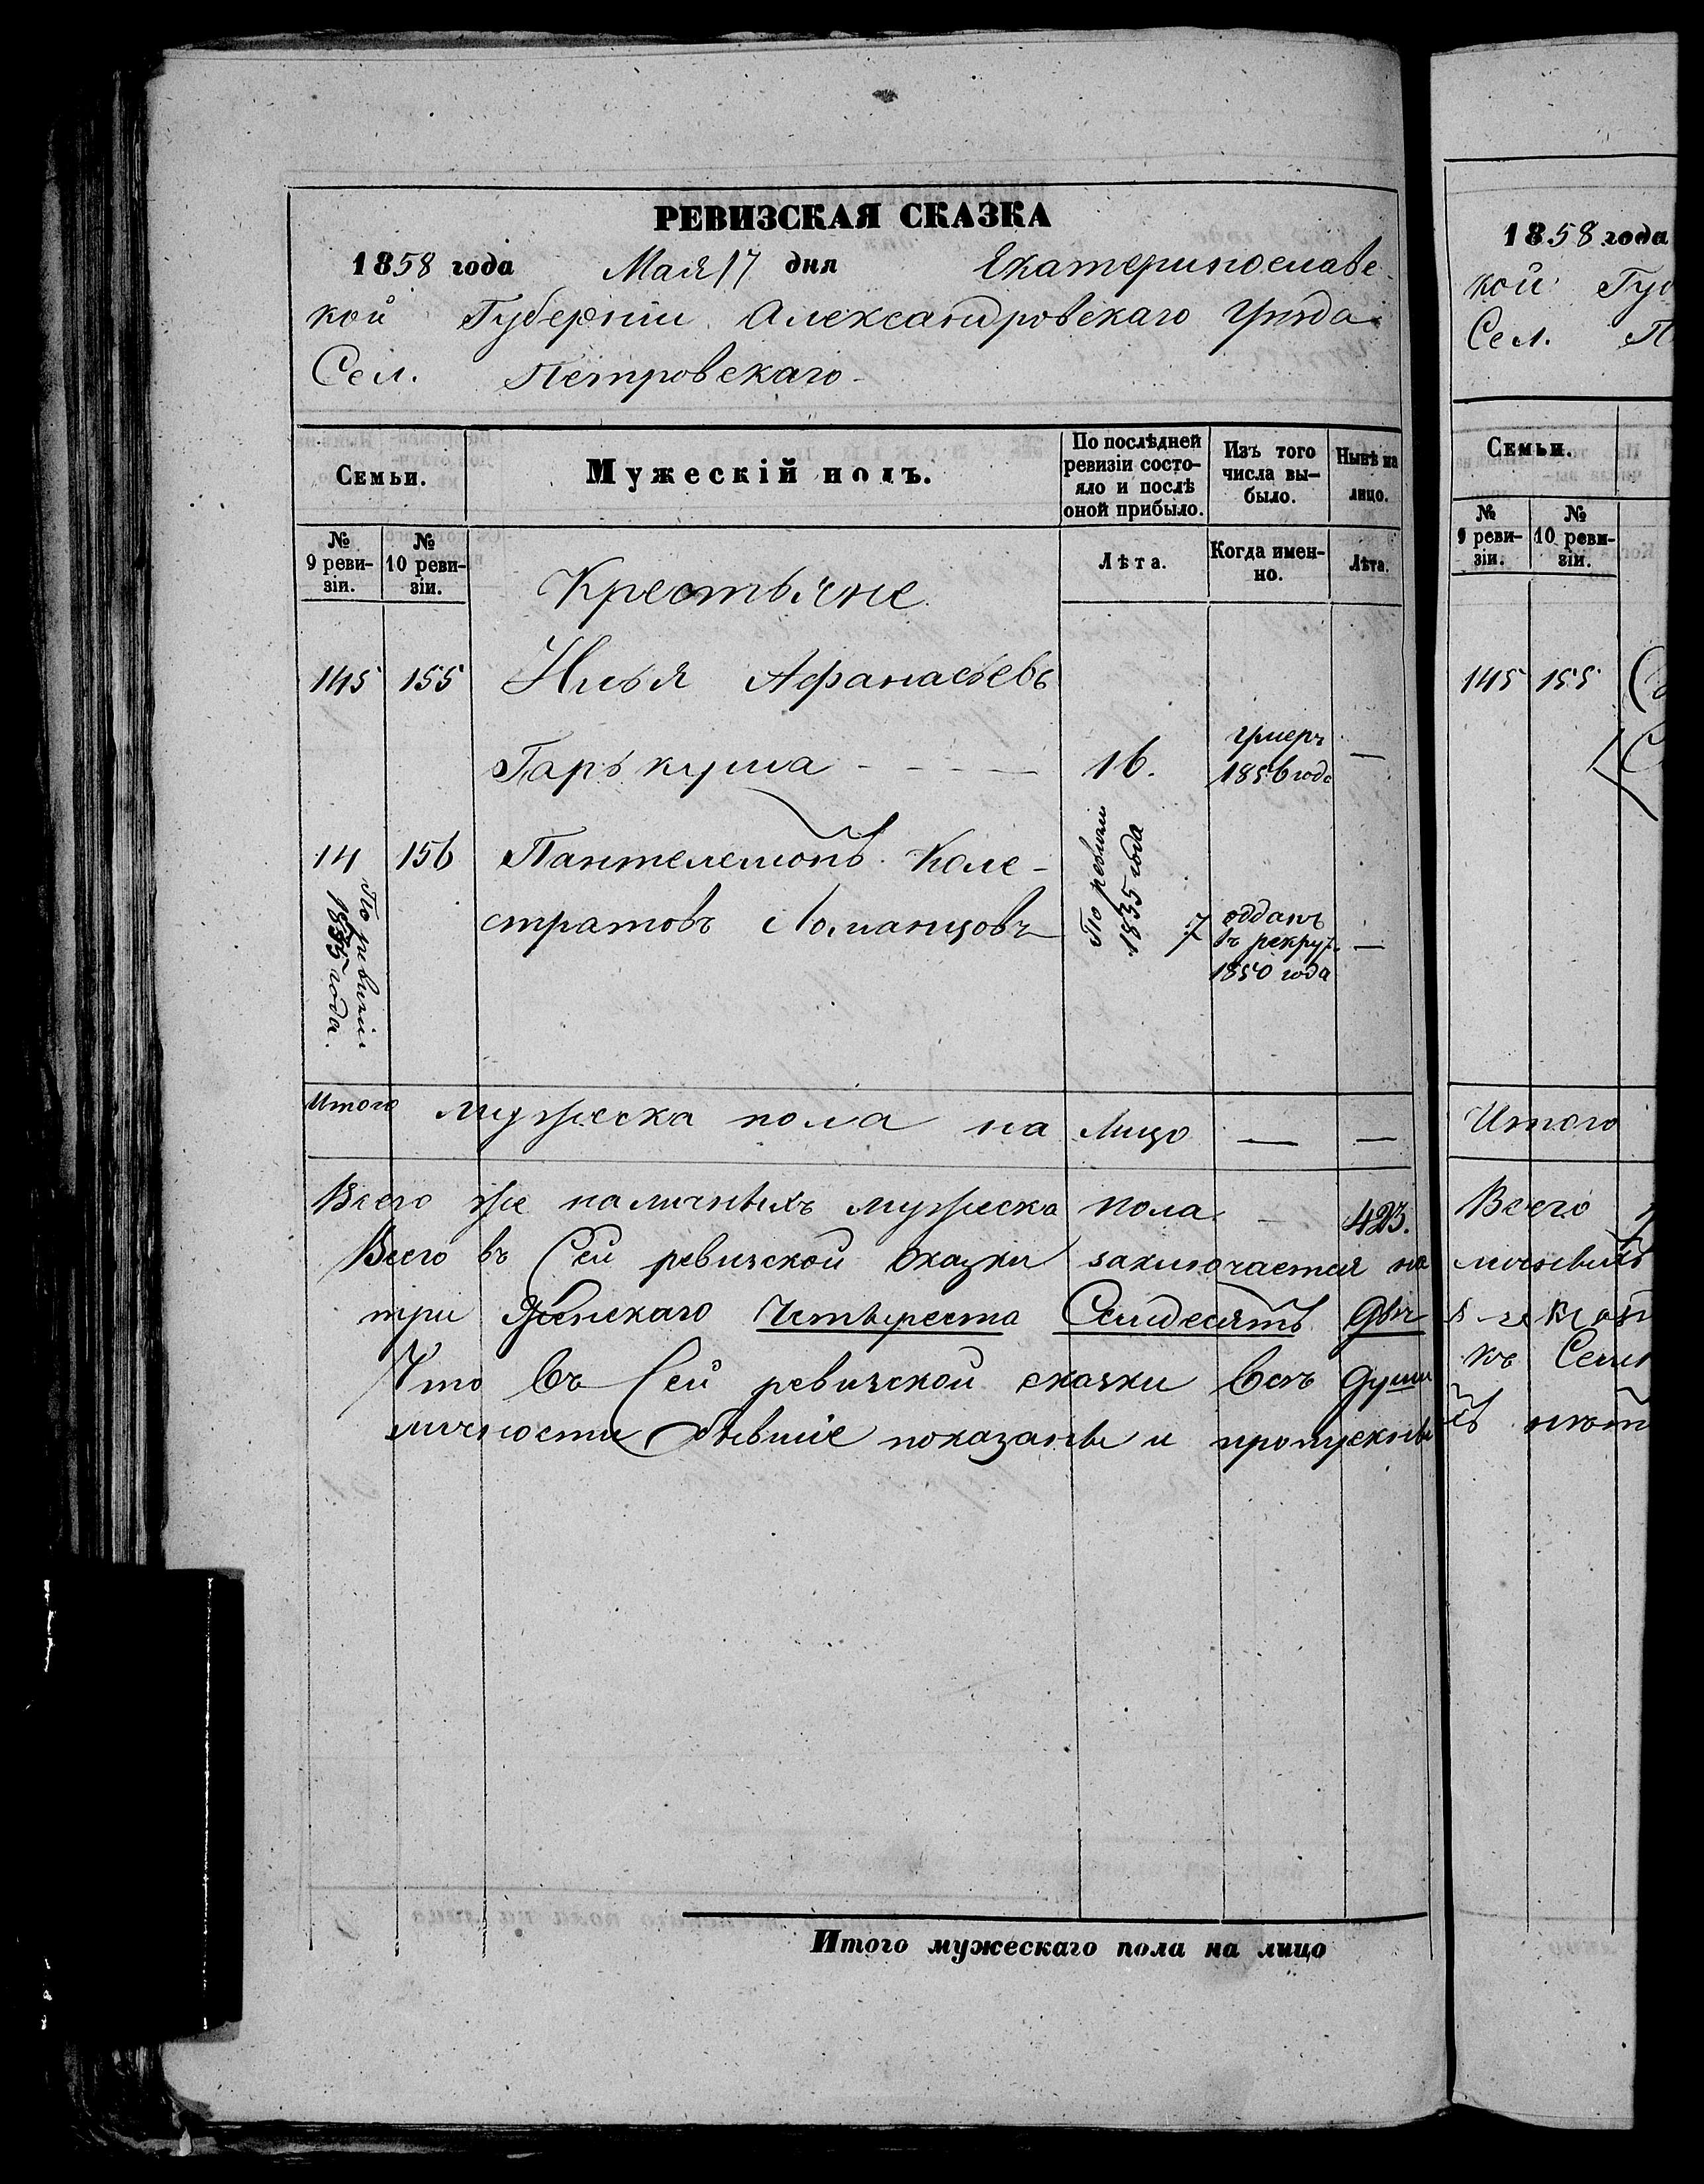 РЕВИЗСКАЯ СКАЗКА
1858 года Мая 17 дня Екатеринославс-
кой Губерніи Александровскаго Уѣзда
Сел. Петровскаго
Семьи.
Мужескій полъ.
По послѣдней ревизіи состо-
яло и послѣ оной прибыло.
Изъ того числа вы-
было.
Нынѣ на лицо.
№ 9 реви-
зіи.
№ 10 реви-
зіи.
Лѣта.
Когда имен-
но.
Лѣта.
Крестьяне
145 155 Илья Афанасьевъ
Гарькуша - - - - 16. умеръ 1856 года —
14 156 Пантелемонъ Кале-
стратовъ Ломанцовъ 7 отданъ въ рекрут. 1850 года —
По ревизіи 1835 года.
По ревизіи 1835 года
Итого мужеска пола на Лицо — —
Всего же наличныхъ мужеска пола — 423.
Всего въ Сей ревизской сказки заключается на
три Женскаго Четыреста Семдесятъ Двѣ
Что въ Сей ревизской сказки всѣ души
личности бывшіе показаны и
Итого мужескаго пола на лицо
1858 года
кой Гу
Сел. П
Семьи.
№ 9 реви-
зіи.
№ 10 реви-
зіи.
145 155
Итого
Всего